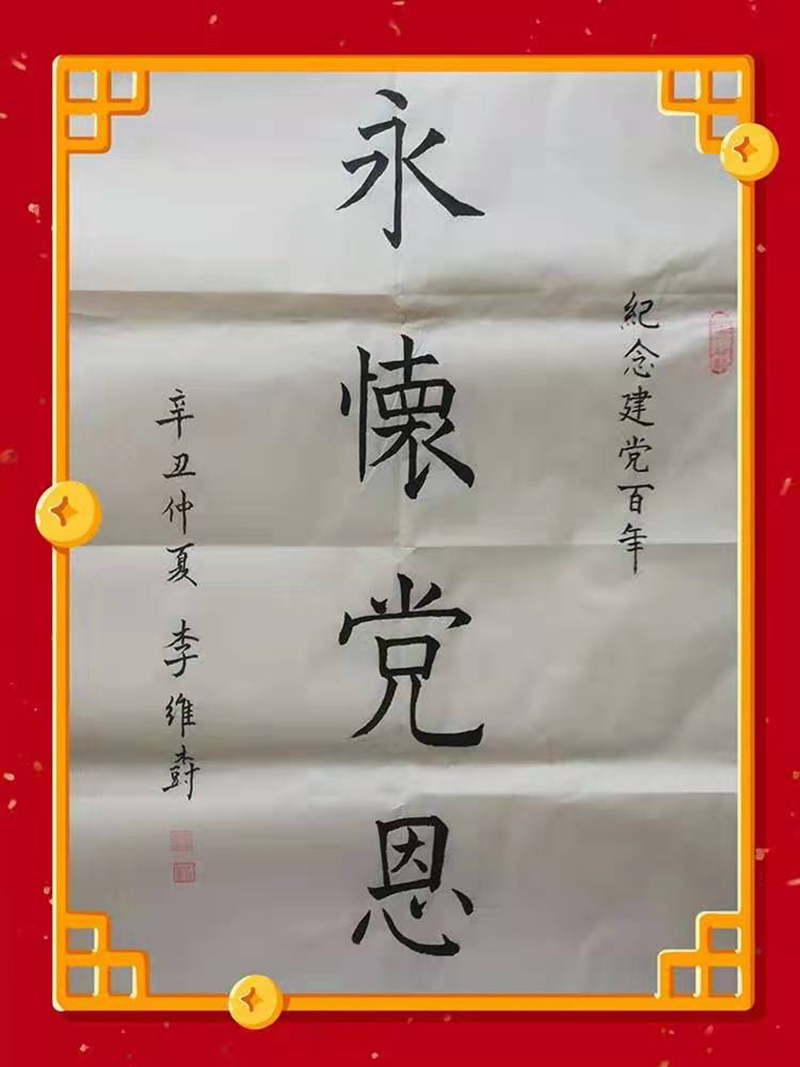 紀念建党百年
永懐党恩
辛丑仲夏 李維